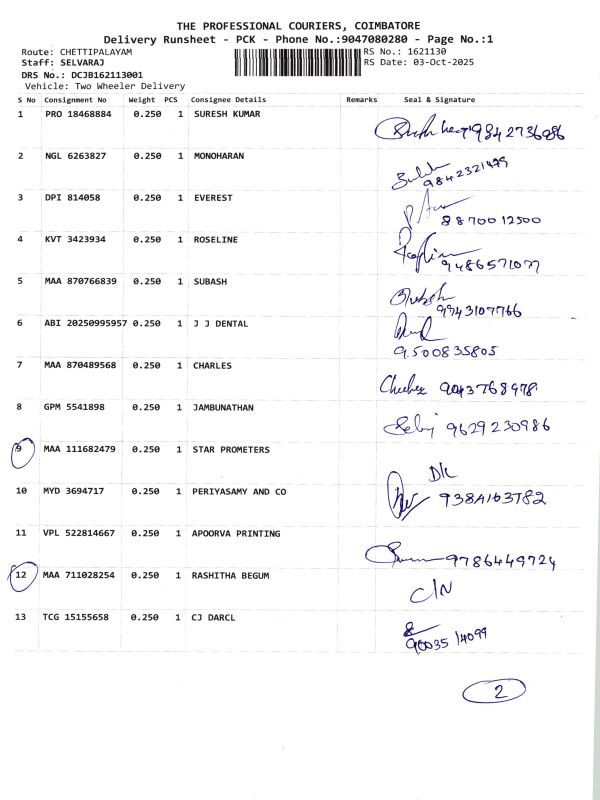 THE PROFESSIONAL COURIERS, COIMBATORE
Delivery Runsheet - PCK - Phone No.:9047080280 - Page No.:1
Route: CHETTIPALAYAM RS No.: 1621130
Staff: SELVARAJ RS Date: 03-Oct-2025
DRS No.: DCJB162113001
Vehicle: Two Wheeler Delivery
S No Consignment No Weight PCS Consignee Details Remarks Seal & Signature
1 PRO 18468884 0.250 1 SURESH KUMAR
9842736986
2 NGL 6263827 0.250 1 MONOHARAN
9842321479
3 DPI 814058 0.250 1 EVEREST
8870012500
4 KVT 3423934 0.250 1 ROSELINE
9486571077
5 MAA 870766839 0.250 1 SUBASH
Subash
9943107766
6 ABI 20250995957 0.250 1 J J DENTAL
9500835805
7 MAA 870489568 0.250 1 CHARLES
9043768978
8 GPM 5541898 0.250 1 JAMBUNATHAN
9629230986
9 MAA 111682479 0.250 1 STAR PROMETERS
D/L
10 MYD 3694717 0.250 1 PERIYASAMY AND CO
11 VPL 522814667 0.250 1 APOORVA PRINTING
9786449724
12 MAA 711028254 0.250 1 RASHITHA BEGUM
C/N
13 TCG 15155658 0.250 1 CJ DARCL
90035 14099
2